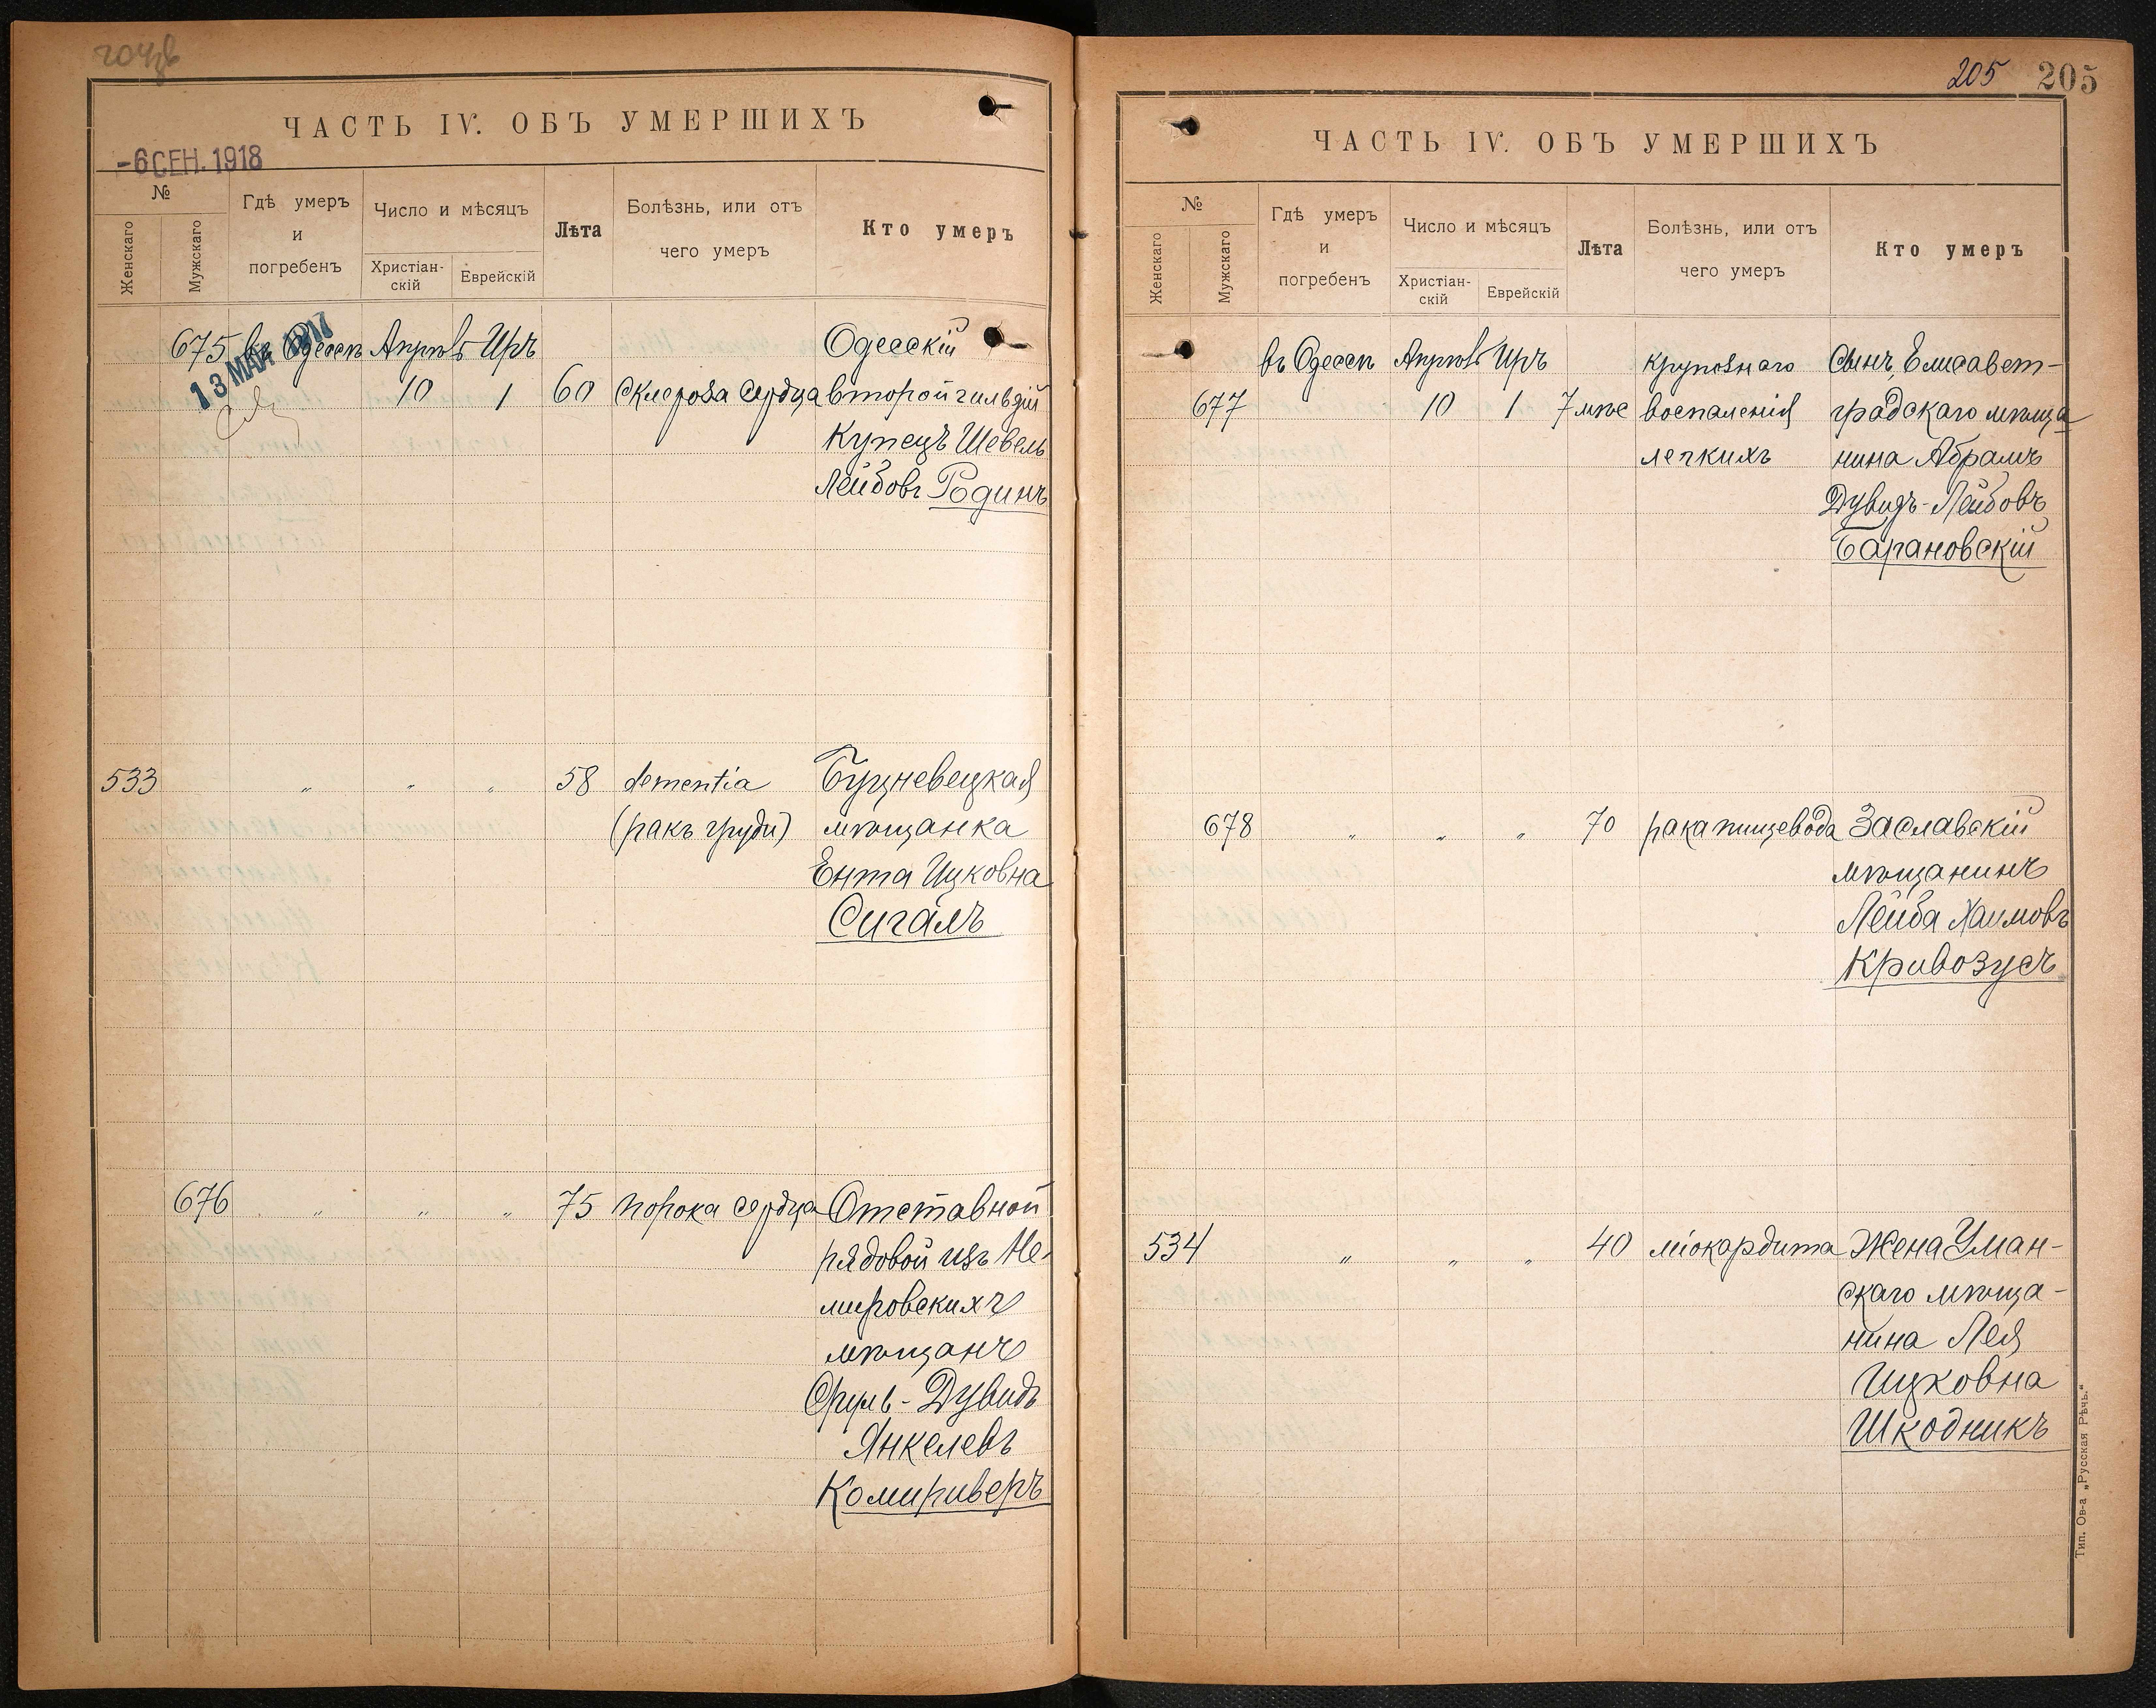 204 об
ЧАСТЬ IV. ОБЪ УМЕРШИХЪ
-6 СЕН. 1918
№
Женскаго
Мужскаго
Гдѣ умеръ
и
погребенъ
Число и мѣсяцъ
Христіан-
скій
Еврейскій
Лѣта
Болѣзнь, или отъ
чего умеръ
Кто умеръ
675 въ Одессѣ Апрѣль Иръ Одесскій
13 МАЯ 1917
10 1 60 склероза сердца второй гильдіи
Купецъ Шевель
Лейбовъ Родинъ
533 " " " 58 dementia Бущневецкая
(ракъ груди) мѣщанка
Ента Ицковна
Сигалъ
676 " " " 75 порока сердца Отставной
рядовой изъ Не-
мировскихъ
мѣщанъ
Сруль-Дувидъ
Янкелевъ
Комириверъ
205 205
ЧАСТЬ IV. ОБЪ УМЕРШИХЪ
№
Женскаго
Мужскаго
Гдѣ умеръ
и
погребенъ
Число и мѣсяцъ
Христіан-
скій
Еврейскій
Лѣта
Болѣзнь, или отъ
чего умеръ
Кто умеръ
въ Одессѣ Апрѣль Иръ крупознаго Сынъ Елисавет-
677 10 1 7 мѣс воспаленія градскаго мѣща
легкихъ нина Абрамъ
Дувидъ-Лейбовъ
Барановскій
678 " " " 70 рака пищевода Заславскій
мѣщанинъ
Лейба Хаимовъ
Кривозусъ
534 " " " 40 міокардита Жена Уман-
скаго мѣща-
нина Лея
Ицковна
Шкодникъ
Тип. Ов-а „Русская Рѣчь.“